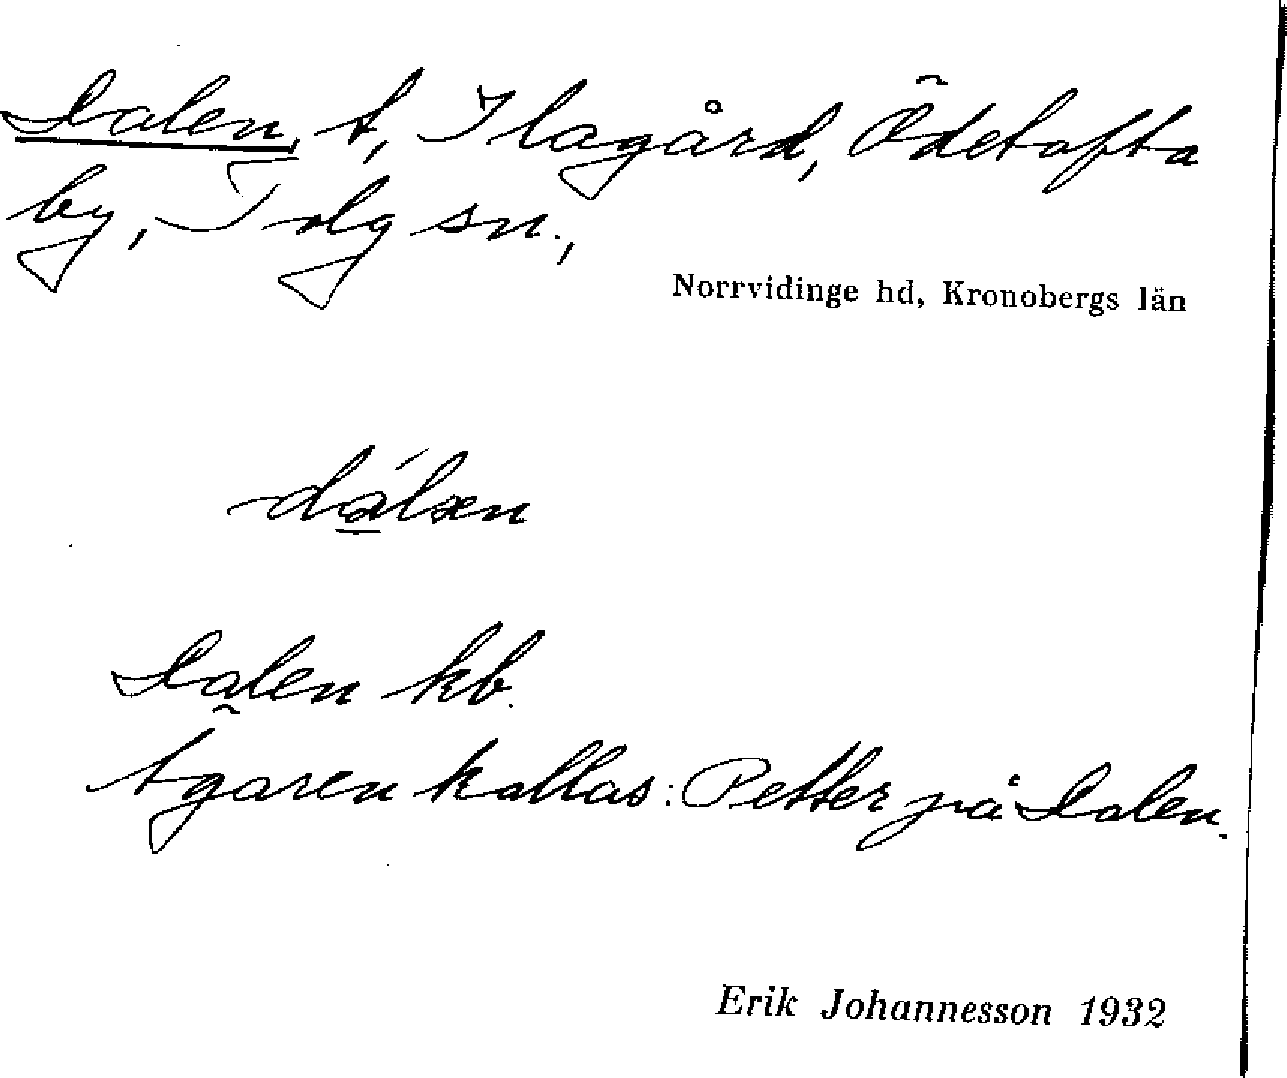 Dalen, t, Ilagård, Ödetofta
by, Tolg sn.,
Norrvidinge hd, Kronobergs län
dálən
Dalen kb.
Ägaren kallas: Petter på Dalen.
Erik Johannesson 1932